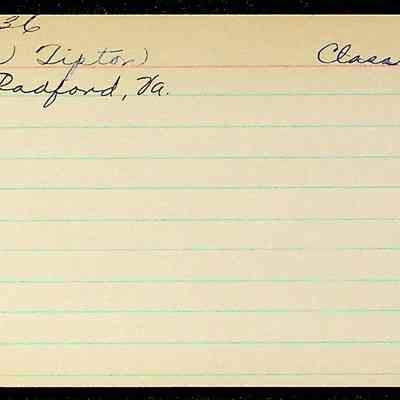 36
) Tipton) Class
Radford, Va.